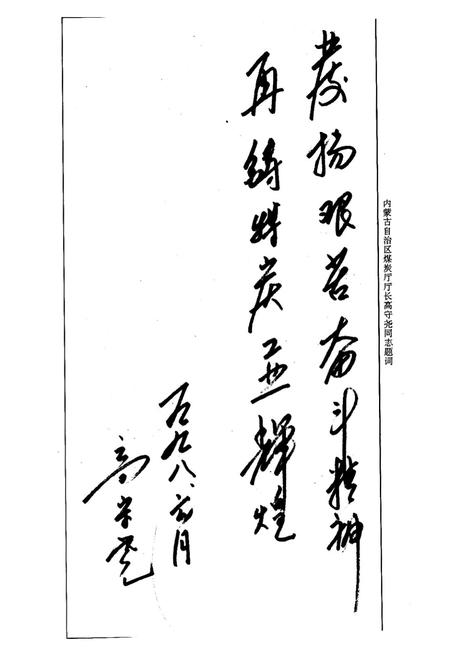 内蒙古自治区煤炭厅厅长高守尧同志题词
发扬艰苦奋斗精神
再铸煤炭工业辉煌
一九九八、六月
高守尧